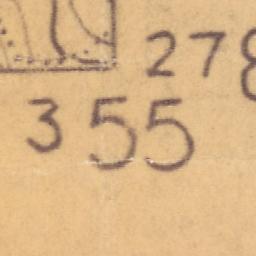 278
355